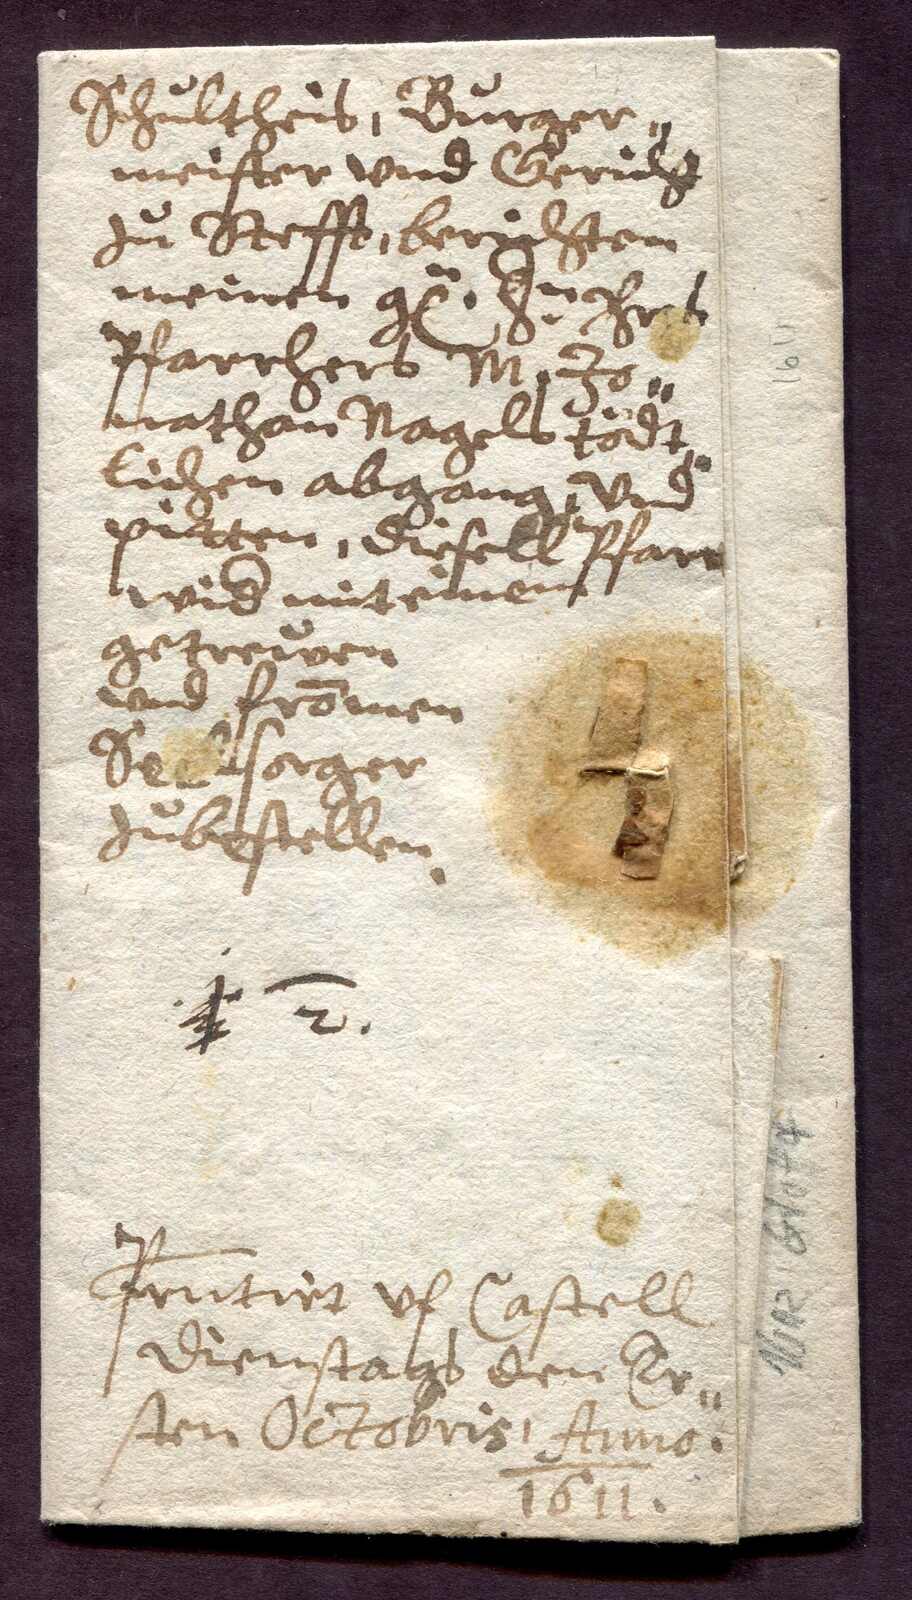 Schultheis, Burger„
meister vnd Gericht
zu Stefft, berichten
meinen gn. Hn Ihres
Pfarrhers M. Jo„
nathan Nagels tödt„
lichen abgang, vnd
pitten, dieselb Pfarr
wid mit einem
getreuen
vnd from̄en
Seelsorger
zubestellen.
2.
Prntirt vf Castell
Dienstags den Er„
sten Octobris, Anno.
1611.
1611